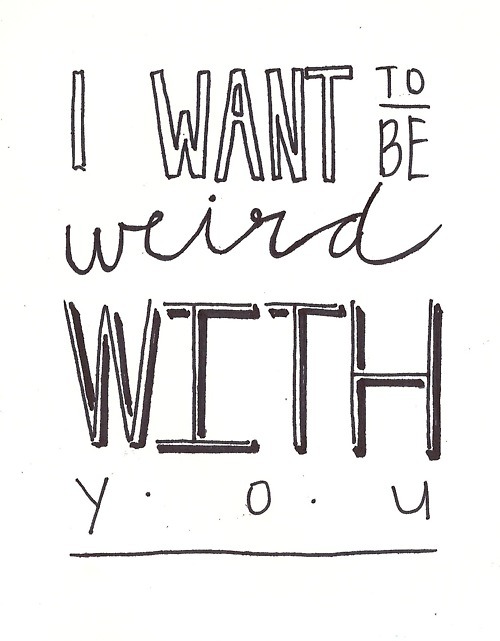 I WANT TO BE
weird
WITH
y · o · u